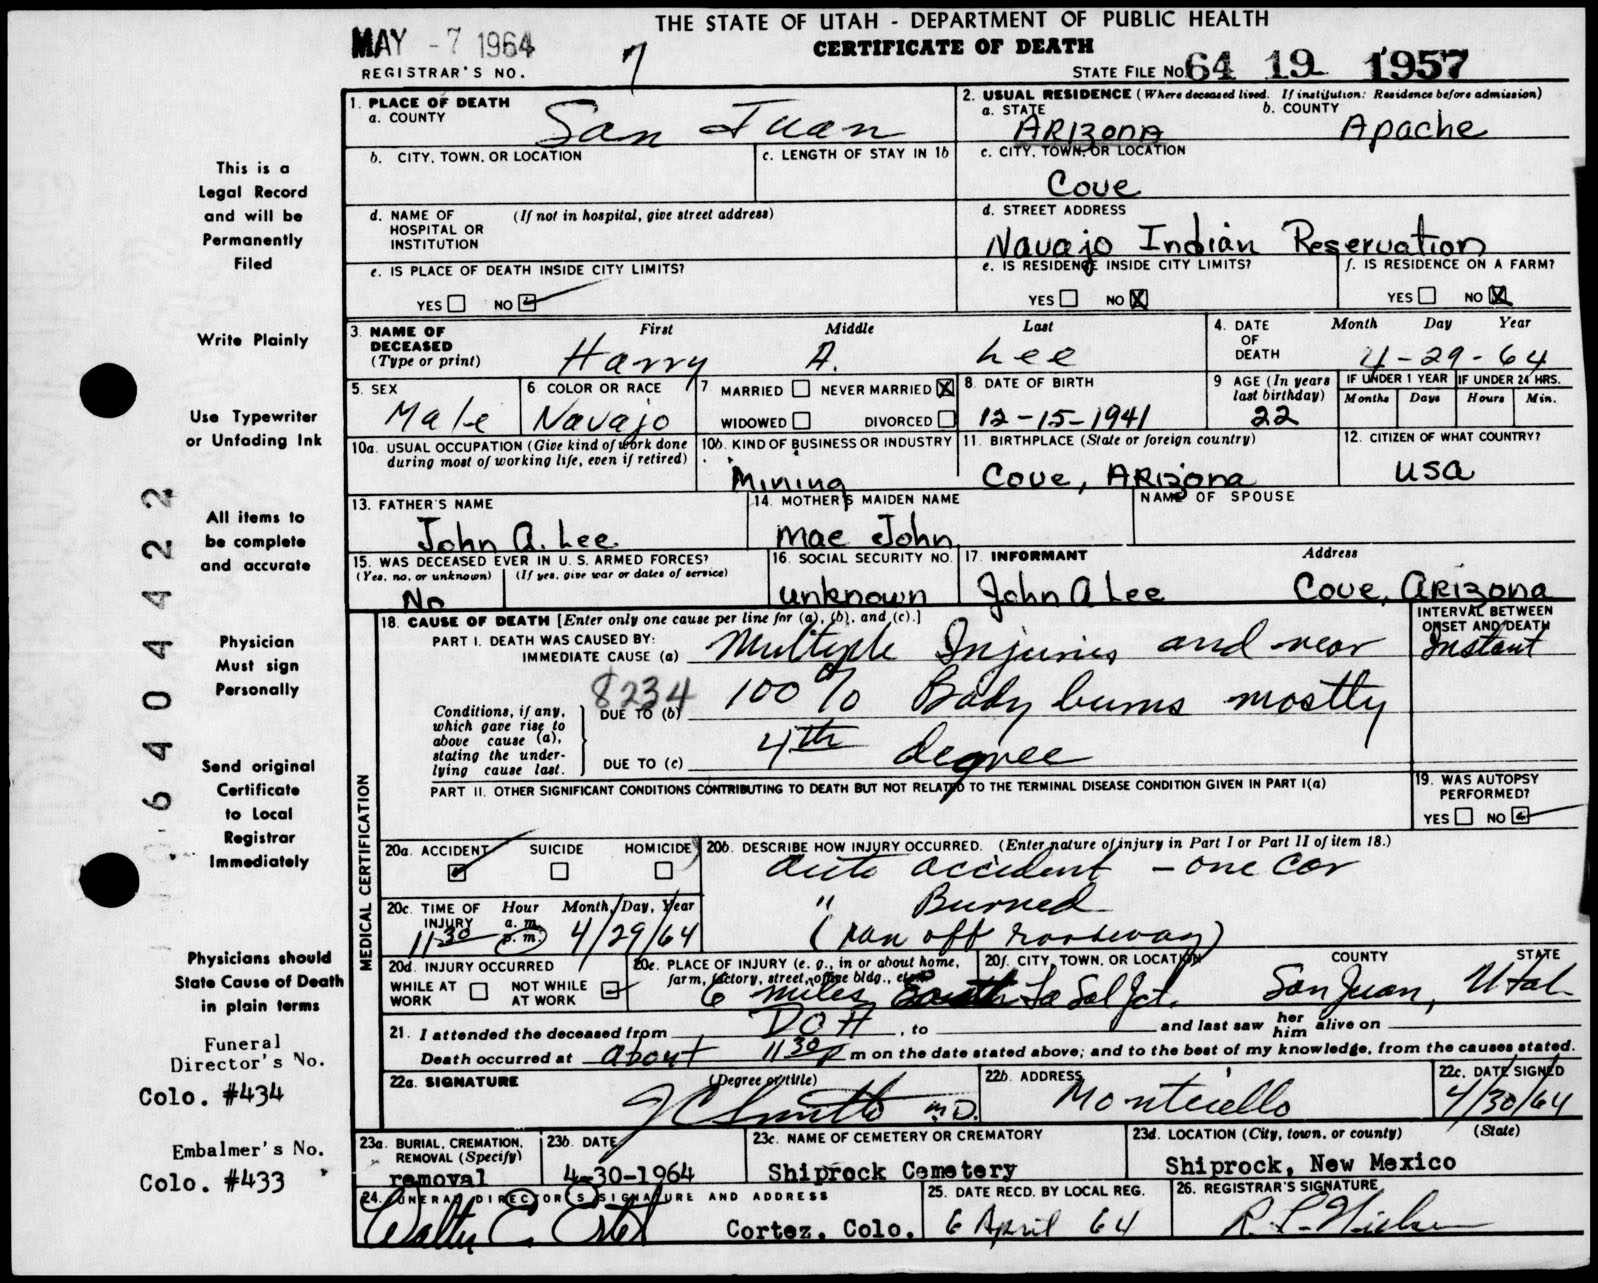 THE STATE OF UTAH - DEPARTMENT OF PUBLIC HEALTH
CERTIFICATE OF DEATH
MAY - 7 1964
REGISTRAR'S NO. 7
STATE FILE NO. 64 19 1957
This is a
Legal Record
and will be
Permanently
Filed
Write Plainly
Use Typewriter
or Unfading Ink
All items to
be complete
and accurate
Physician
Must sign
Personally
Send original
Certificate
to Local
Registrar
Immediately
Physicians should
State Cause of Death
in plain terms
Funeral
Director's No.
Colo. #434
Embalmer's No.
Colo. #433
640 4422
1. PLACE OF DEATH
a. COUNTY
San Juan
2. USUAL RESIDENCE (Where deceased lived. If institution: Residence before admission)
a. STATE b. COUNTY
ARIZONA Apache
b. CITY, TOWN, OR LOCATION
c. LENGTH OF STAY IN 1b
c. CITY, TOWN, OR LOCATION
Cove
d. NAME OF (If not in hospital, give street address)
HOSPITAL OR
INSTITUTION
d. STREET ADDRESS
Navajo Indian Reservation
e. IS PLACE OF DEATH INSIDE CITY LIMITS?
YES NO
e. IS RESIDENCE INSIDE CITY LIMITS?
YES NO X
f. IS RESIDENCE ON A FARM?
YES NO X
3. NAME OF First Middle Last
DECEASED
(Type or print) Harry A. Lee
4. DATE Month Day Year
OF
DEATH 4-29-64
5. SEX
Male
6 COLOR OR RACE
Navajo
7 MARRIED NEVER MARRIED X
WIDOWED DIVORCED
8. DATE OF BIRTH
12-15-1941
9 AGE (In years
last birthday)
22
IF UNDER 1 YEAR IF UNDER 24 HRS.
Months Days Hours Min.
10a. USUAL OCCUPATION (Give kind of work done
during most of working life, even if retired)
10b. KIND OF BUSINESS OR INDUSTRY
Mining
11. BIRTHPLACE (State or foreign country)
Cove, ARIzona
12. CITIZEN OF WHAT COUNTRY?
USA
13. FATHER'S NAME
John A. Lee
14. MOTHER'S MAIDEN NAME
Mae John
NAME OF SPOUSE
15. WAS DECEASED EVER IN U. S. ARMED FORCES?
(Yes, no, or unknown) (If yes, give war or dates of service)
No
16. SOCIAL SECURITY NO.
unknown
17. INFORMANT Address
John A Lee Cove, ARIzona
18. CAUSE OF DEATH [Enter only one cause per line for (a), (b), and (c).]
INTERVAL BETWEEN
ONSET AND DEATH
PART I. DEATH WAS CAUSED BY:
IMMEDIATE CAUSE (a) Multiple Injuries and near Instant
8234
Conditions, if any,
which gave rise to
above cause (a),
stating the under-
lying cause last.
DUE TO (b) 100% Body burns mostly
DUE TO (c) 4th degree
PART II. OTHER SIGNIFICANT CONDITIONS CONTRIBUTING TO DEATH BUT NOT RELATED TO THE TERMINAL DISEASE CONDITION GIVEN IN PART I(a)
19. WAS AUTOPSY
PERFORMED?
YES NO
MEDICAL CERTIFICATION
20a. ACCIDENT SUICIDE HOMICIDE
20b. DESCRIBE HOW INJURY OCCURRED. (Enter nature of injury in Part I or Part II of item 18.)
auto accident - one car
" Burned
(ran off roadway)
20c. TIME OF Hour Month, Day, Year
INJURY a. m.
11 30 p. m. 4/29/64
20d. INJURY OCCURRED
WHILE AT NOT WHILE
WORK AT WORK
20e. PLACE OF INJURY (e. g., in or about home,
farm, factory, street, office bldg., etc.)
20f. CITY, TOWN, OR LOCATION COUNTY STATE
6 miles South La Sal Jct. San Juan, Utah
21. I attended the deceased from DOA, to and last saw her him alive on
Death occurred at about 11 30 p m on the date stated above; and to the best of my knowledge, from the causes stated.
22a. SIGNATURE (Degree or title)
J C Smith M.D.
22b. ADDRESS
Monticello
22c. DATE SIGNED
4/30/64
23a. BURIAL, CREMATION,
REMOVAL (Specify)
removal
23b. DATE
4-30-1964
23c. NAME OF CEMETERY OR CREMATORY
Shiprock Cemetery
23d. LOCATION (City, town, or county) (State)
Shiprock, New Mexico
24. FUNERAL DIRECTOR'S SIGNATURE AND ADDRESS
Walter E. Ertel Cortez, Colo.
25. DATE RECD. BY LOCAL REG.
6 April 64
26. REGISTRAR'S SIGNATURE